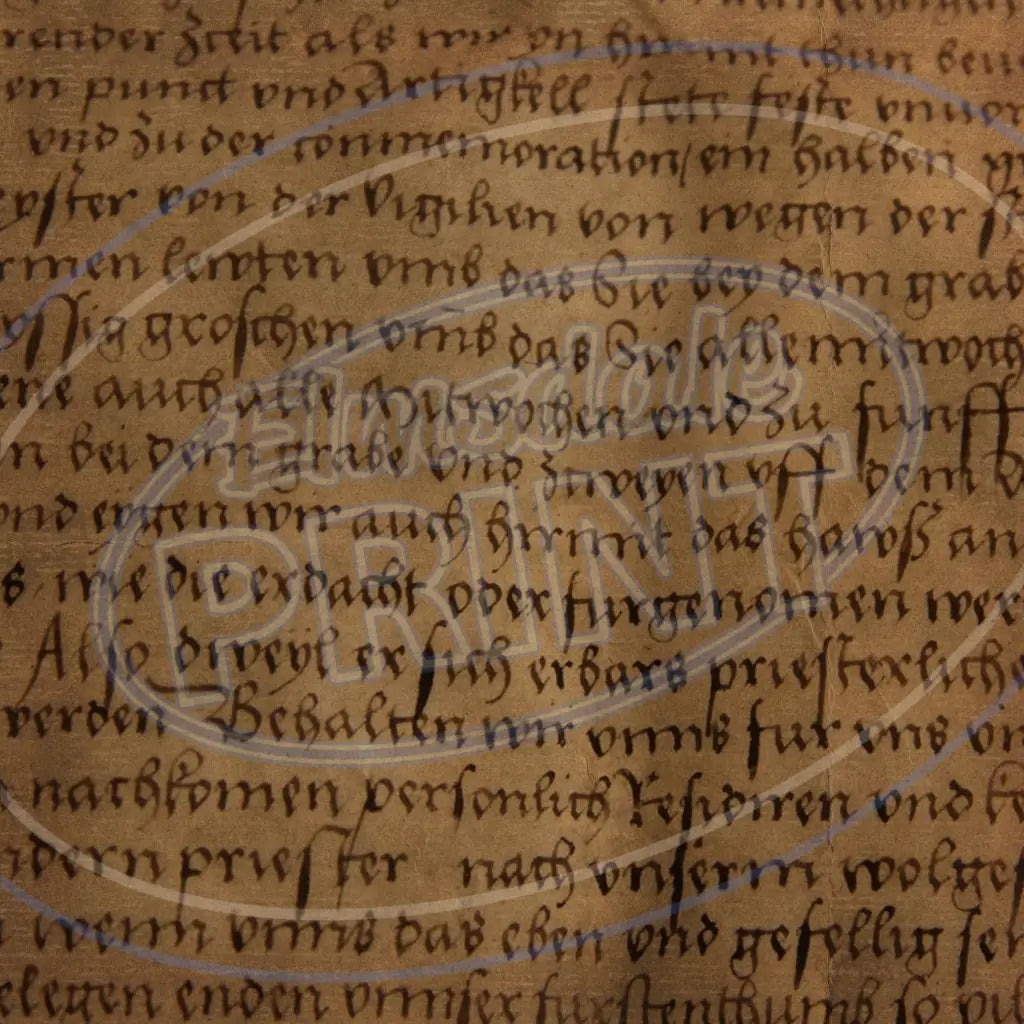 render Zceit als wir yn hirmit thun
en punct vnd Artigkell stete feste
vnd zu der commemoration/ ein halben
von der Vigilien von wegen der
lewten vmb das Sie bey dem grab
ssig groschen vmb das Sie alle mitwoch
auch alle Mitwochen vnd zu funff
n bei dem grabe vnd zweyen vff dem
vnd eygen wir auch hirmit das hawß an
s wie die erdacht oder furgenomen wer
Also dweyl er sich erbars priesterliche
werden Behalten wir vnns fur vns
nachkomen personlich Residiren vnd
ndern priester nach vnserm wolgef
wenn vnns das eben vnd gefellig
elegen enden vnnser furstenthumb so
Elmsdale
PRINT